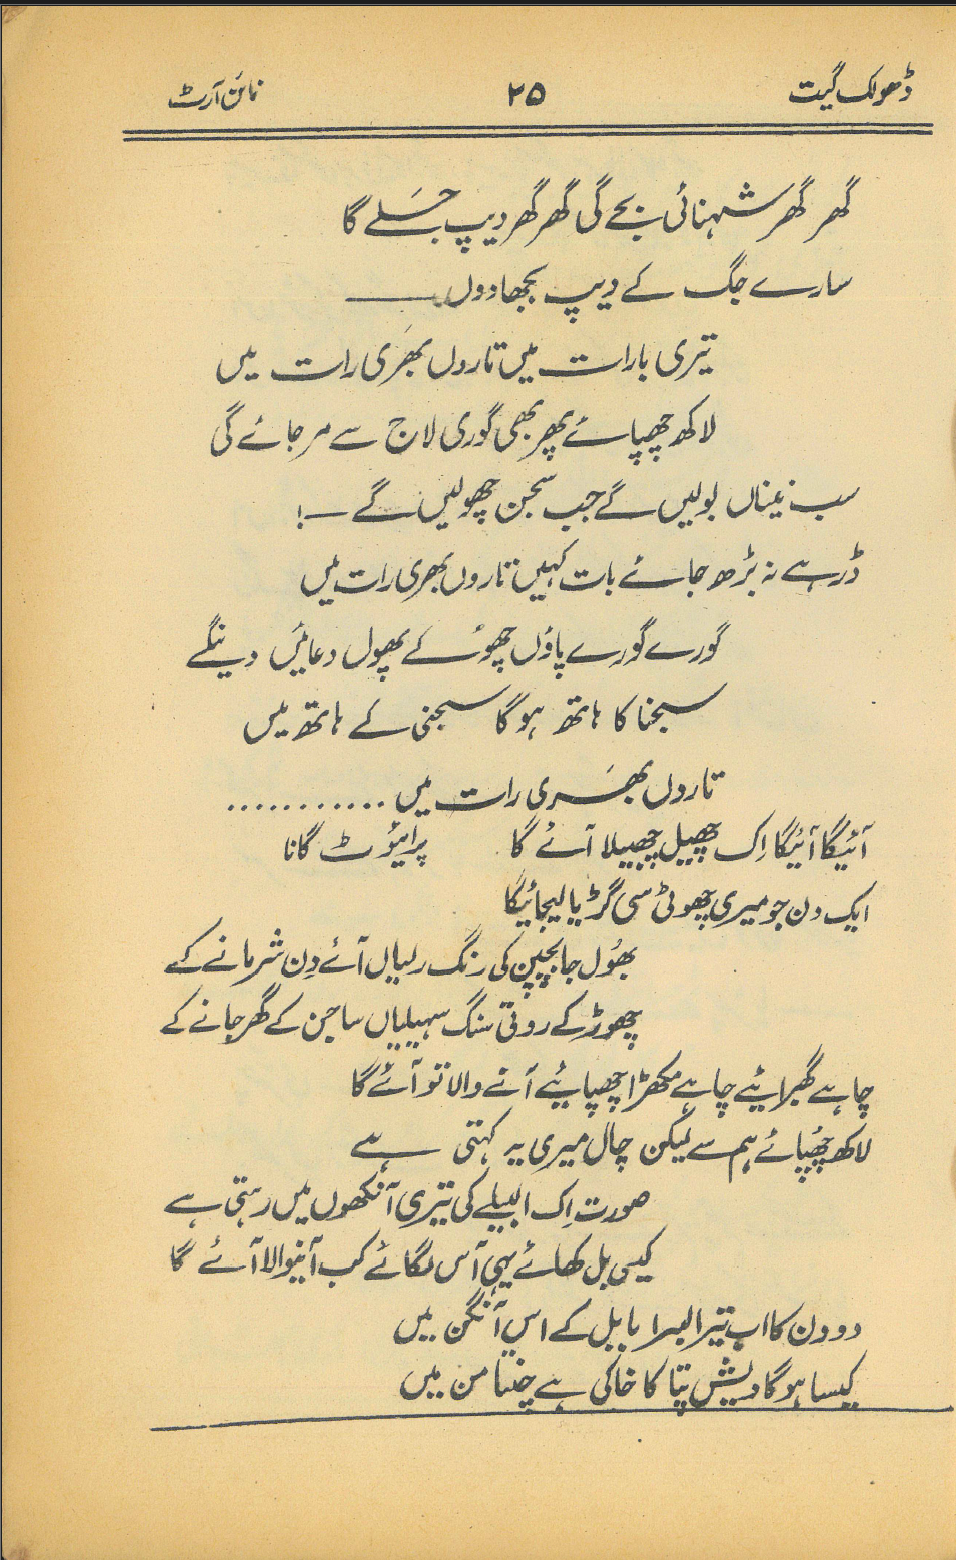 ڈھولک گیت ۲۵ نائن آرٹ
گھر گھر شہنائی بجے گی گھر گھر دیپ جَلے گا
سارے جگ کے دیپ بجھا دوں ـــــــ
تیری بارات میں تاروں بھَری رات میں
لاکھ چھپائے پھر بھی گوری لاج سے مر جائے گی
سب نیناں بولیں گے جب سجن چھولیں گے ـــ !
ڈر ہے نہ بڑھ جائے بات کہیں تاروں بھری رات میں
گورے گورے پاؤں چھوئے کے پھول دعائیں دینگے
سجنا کا ہاتھ ہو گا سجنی کے ہاتھ میں
تاروں بھَری رات میں ............
آئیگا آئیگا اِک چھیل چھبیلا آئے گا پرائیوٹ گانا
ایک دن جو میری چھوٹی سی گڑیا لیجائیگا
بھُول جا بچپن کی رنگ رلیاں آئے دِن شرمانے کے
چھوڑ کے روتی سنگ سہیلیاں ساجن کے گھر جانے کے
چاہے گھبرائیے چاہے مکھڑا چھپائیے آنے والا تو آئے گا
لاکھ چھُپائے ہم سے لیکن چال میری یہ کہتی ہے
صورت اِک البیلے کی تیری آنکھوں میں رہتی ہے
کیسی بل کھائے یہی آس لگائے کب آنیوالا آئے گا
دو دن کا اب تیرا بسرا بابل کے اس آنگن میں
کیسا ہو گا دیش پتا کا خاکی ہے چنتا من میں